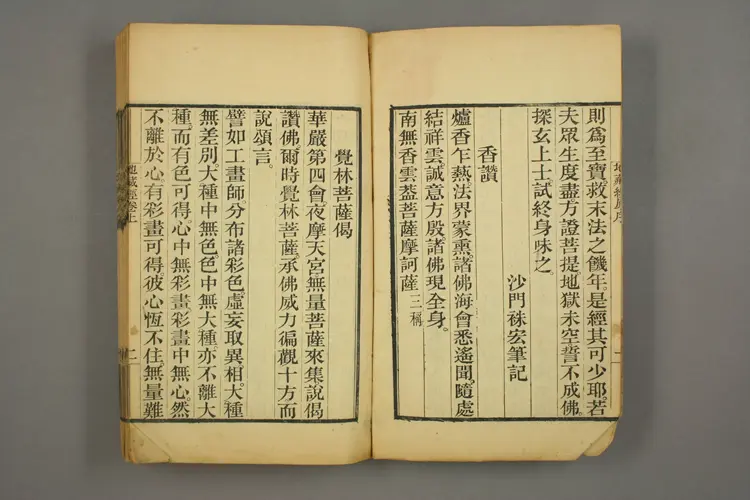 則爲至寶救末法之饑年。是經其可少耶。若
夫眾生度盡方證菩提。地獄未空誓不成佛。
探玄上士。試終身味之。
沙門袾宏筆記
香讚
爐香乍爇。法界蒙熏。諸佛海會悉遙聞。隨處
結祥雲。誠意方殷。諸佛現全身。
南無香雲葢菩薩摩訶薩 三稱
覺林菩薩偈
華嚴第四會。夜摩天宮無量菩薩來集。說偈
讚佛。爾時覺林菩薩。承佛威力。徧觀十方。而
說頌言。
譬如工畫師。分布諸彩色。虛妄取異相。大種
無差別。大種中無色。色中無大種。亦不離大
種。而有色可得。心中無彩畫。彩畫中無心。然
不離於心。有彩畫可得。彼心恆不住。無量難
地藏經卷上
二